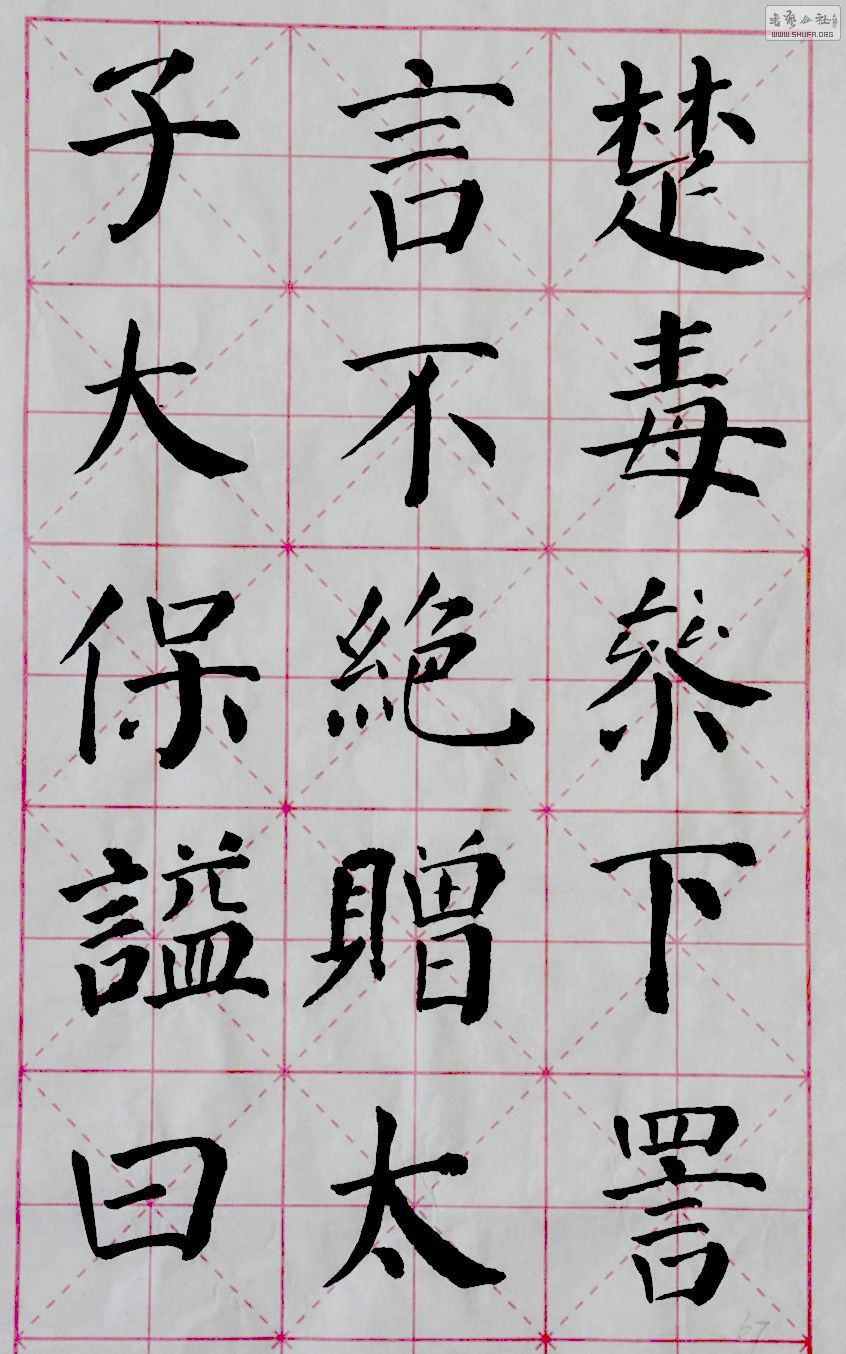 楚毒叅下詈
言不絕贈太
子大保謚曰
書藝公社
WWW.SHUFA.ORG
67